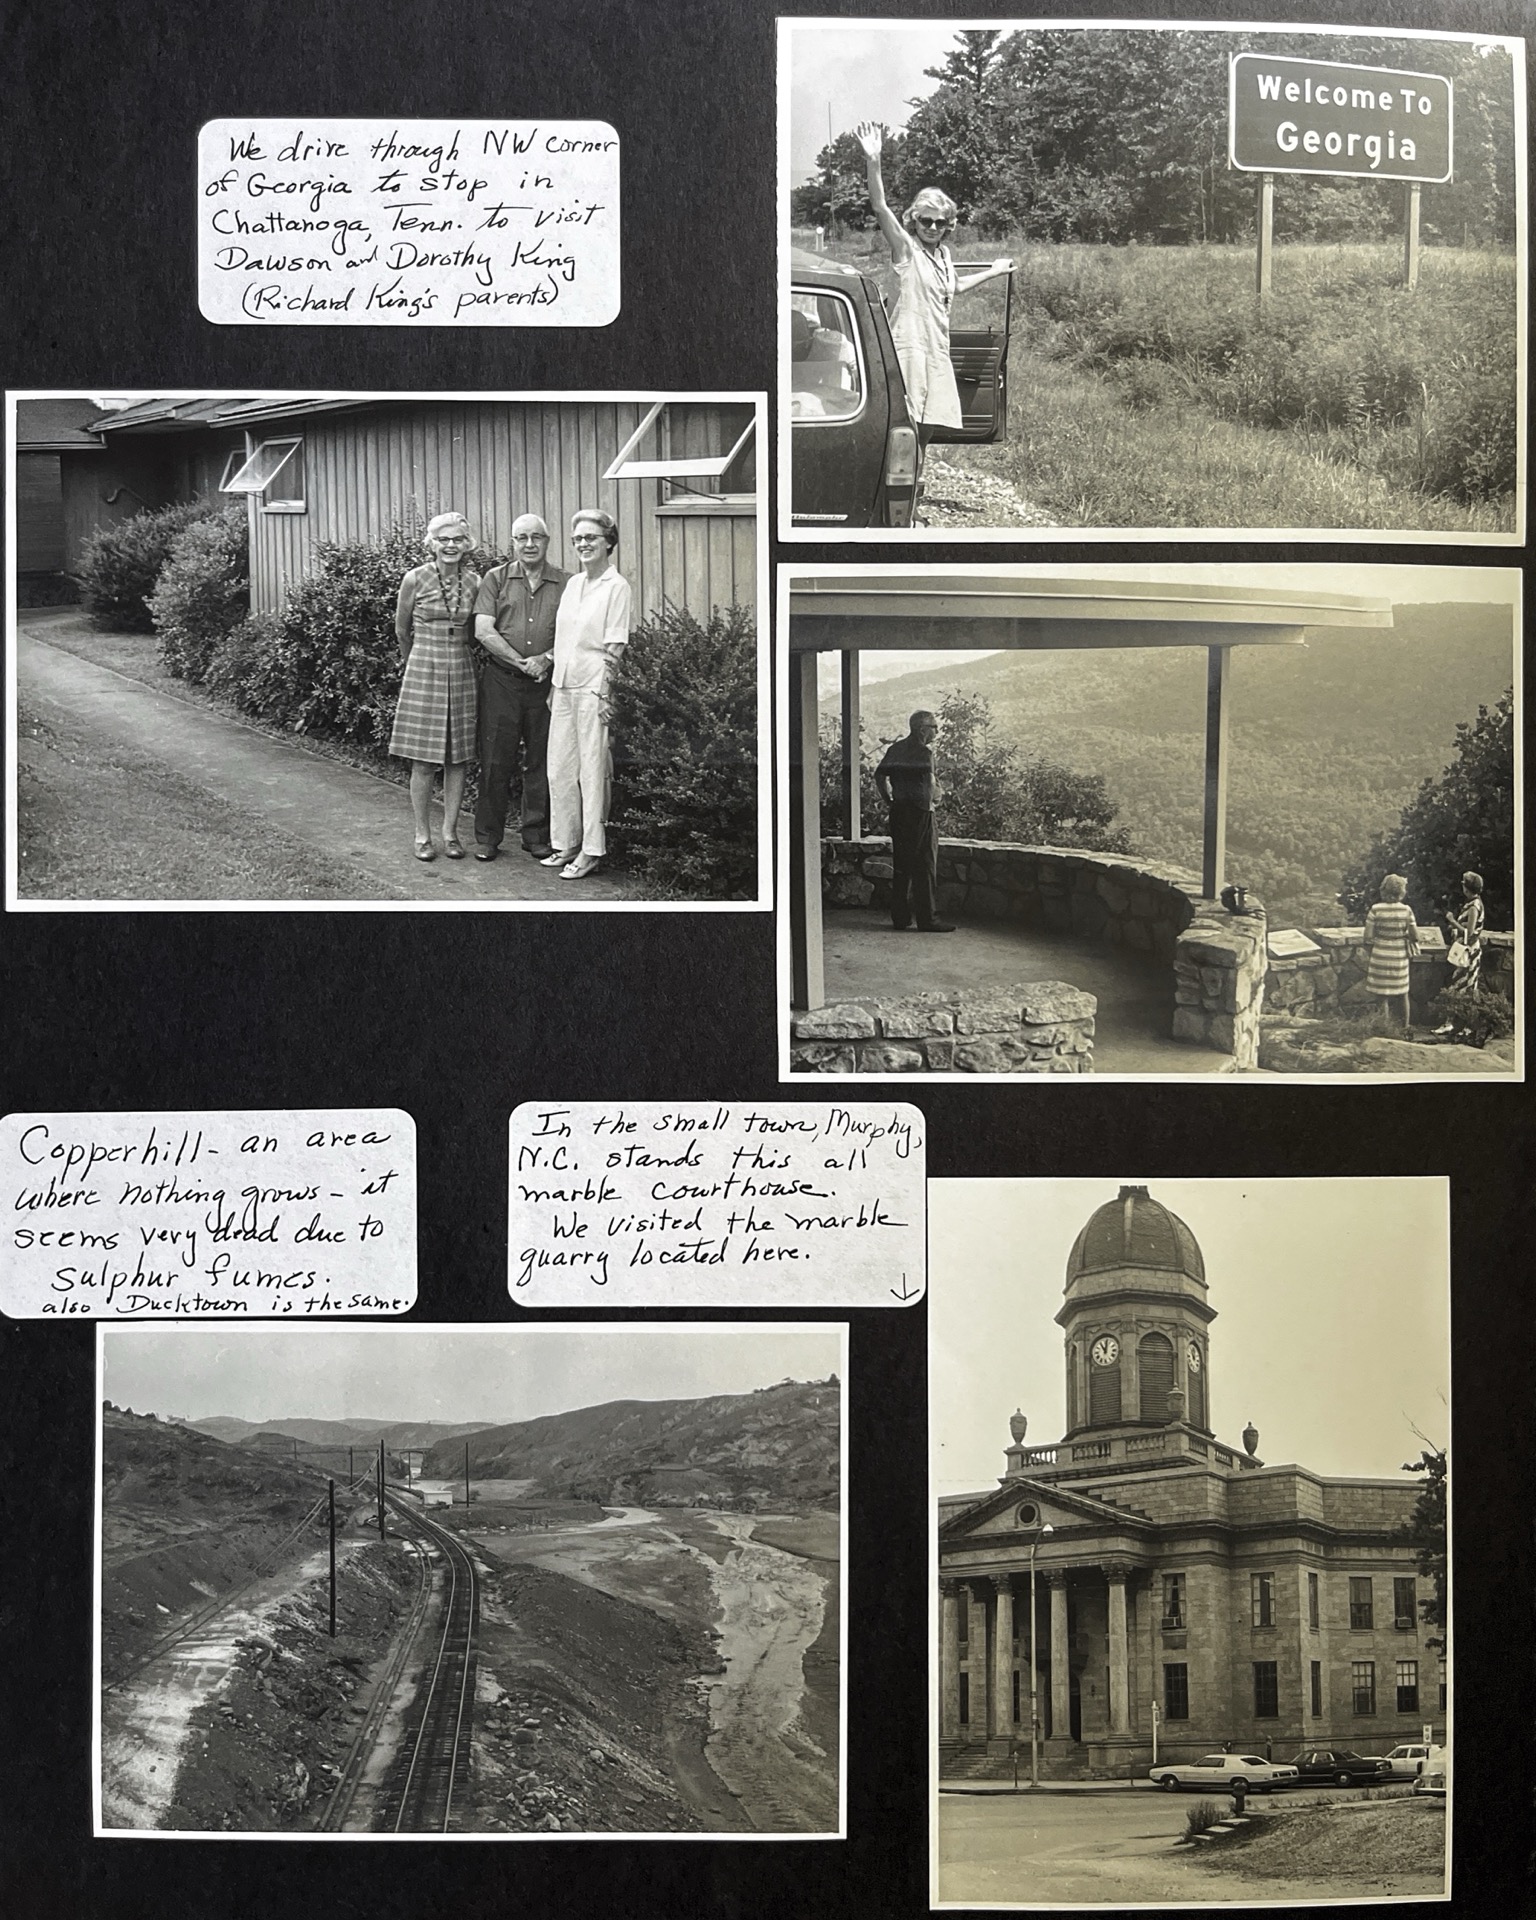 We drive through NW corner
of Georgia to stop in
Chattanoga, Tenn. to visit
Dawson and Dorothy King
(Richard King's parents)
Welcome To
Georgia
Copperhill - an area
where nothing grows - it
seems very dead due to
sulphur fumes.
also Ducktown is the same.
In the small town, Murphy,
N.C. stands this all
marble courthouse.
We visited the marble
quarry located here.